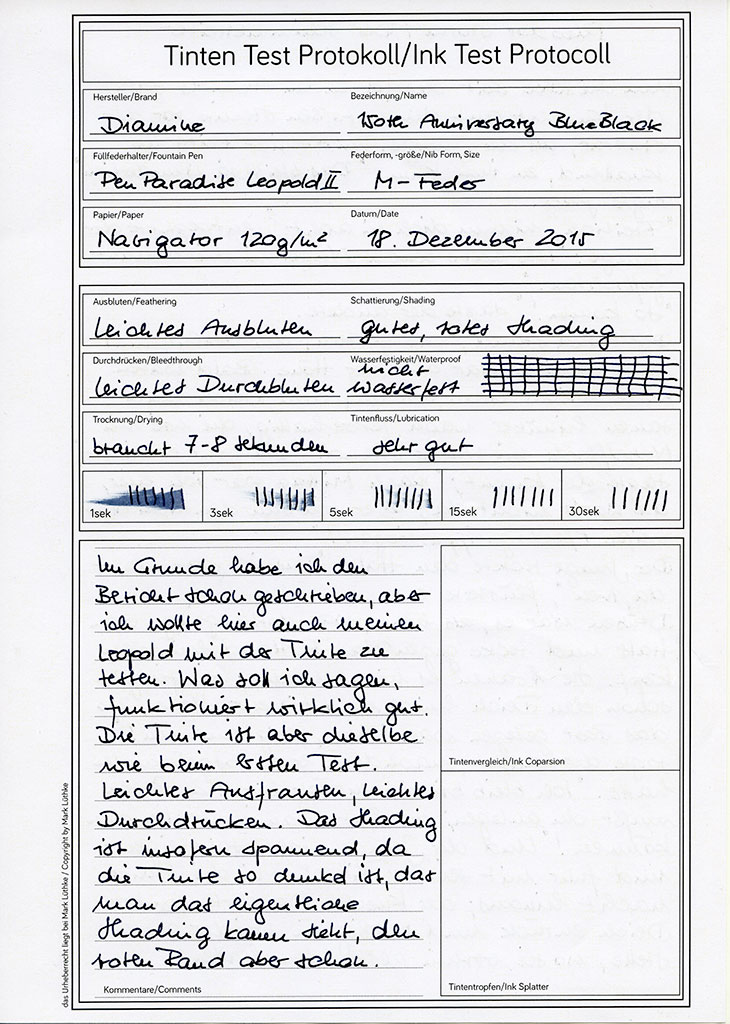 Tinten Test Protokoll/Ink Test Protocoll
Hersteller/Brand
Diamine
Bezeichnung/Name
150th Anniversary BlueBlack
Füllfederhalter/Fountain Pen
Pen Paradise Leopold II
Federform, -größe/Nib Form, Size
M-Feder
Papier/Paper
Navigator 120g/m²
Datum/Date
18. Dezember 2015
Ausbluten/Feathering
leichtes Ausbluten
Schattierung/Shading
gutes, rotes Shading
Durchdrücken/Bleedthrough
leichtes Durchbluten
Wasserfestigkeit/Waterproof
nicht
wasserfest
Trocknung/Drying
braucht 7-8 Sekunden
Tintenfluss/Lubrication
sehr gut
1sek
3sek
5sek
15sek
30sek
Im Grunde habe ich den
Bericht schon geschrieben, aber
ich wollte hier auch meinen
Leopold mit der Tinte zu
testen. Was soll ich sagen,
funktioniert wirklich gut.
Die Tinte ist aber dieselbe
wie beim ersten Test.
Leichtes Ausfransen, leichtes
Durchdrücken. Das Shading
ist insofern spannend, da
die Tinte so dunkel ist, das
man das eigentliche
Shading kaum sieht, den
roten Rand aber schon.
Kommentare/Comments
Tintenvergleich/Ink Coparsion
Tintentropfen/Ink Splatter
das Urheberrecht liegt bei Mark Lüthke / Copyright by Mark Lüthke